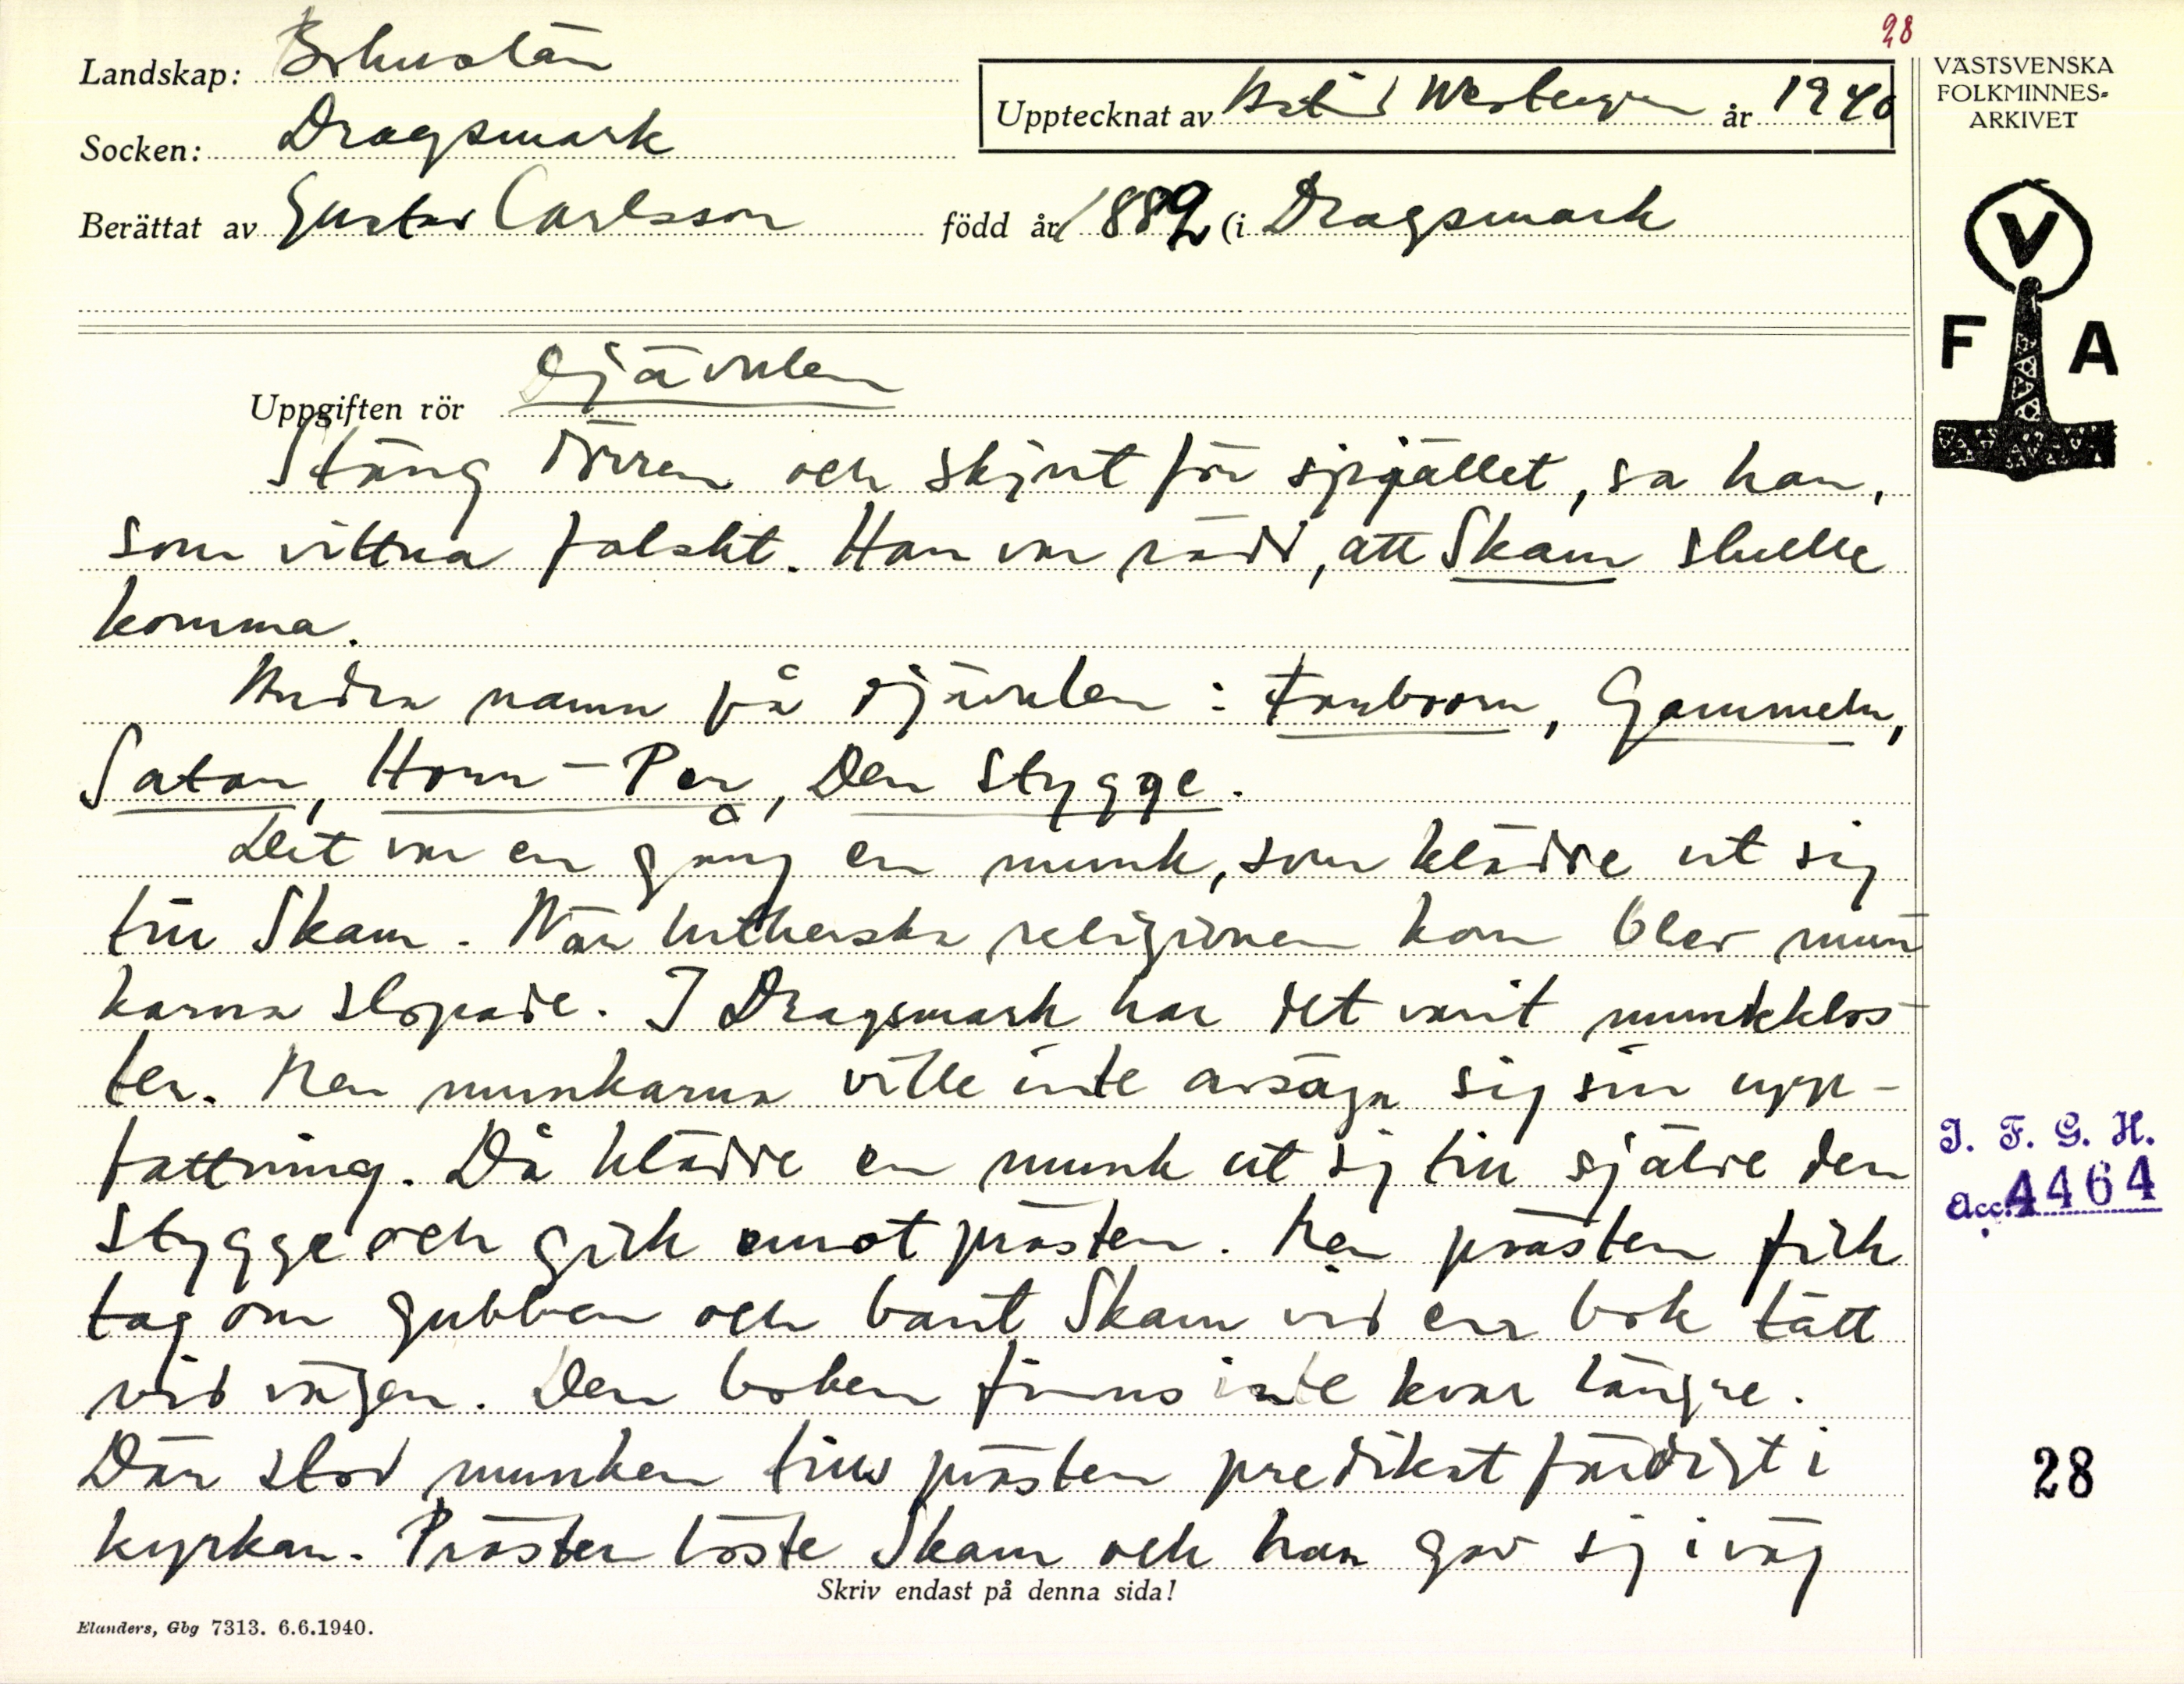 28
Landskap: Bohuslän
Socken: Dragsmark
Berättat av Gustav Carlsson född år 1882 (i Dragsmark
Upptecknat av år 1940
VÄSTSVENSKA
FOLKMINNES-
ARKIVET
V
F A
Uppgiften rör Djävulen
Stäng dörren och skjut för spjället, sa han,
som vittna falskt. Han var rädd, att Skam skulle
komma.
Andra namn på djävulen: Fanbrorn, Gammeln,
Satan, Horn-Per, Den Stygge.
Det var en gång en munk, som klädde ut sig
till Skam. När lutherska religionen kom blev mun
karna slopade. I Dragsmark har det varit munkklos
ter. Men munkarna ville inte avsäga sig sin upp-
fattning. Då klädde en munk ut sj till själve den
Stygge och gick emot prästen. Men prästen fick
tag om gubben och bant Skam vid en bok tätt
vid vägen. Den boken finns inte kvar längre.
Där stod munken tills prästen predikat färdigt i
kyrkan. Prästen löste Skam och han gav sj i väg
Skriv endast på denna sida!
Elanders, Gbg 7313. 6.6.1940.
I. F. G. H.
Acc. 4464
28